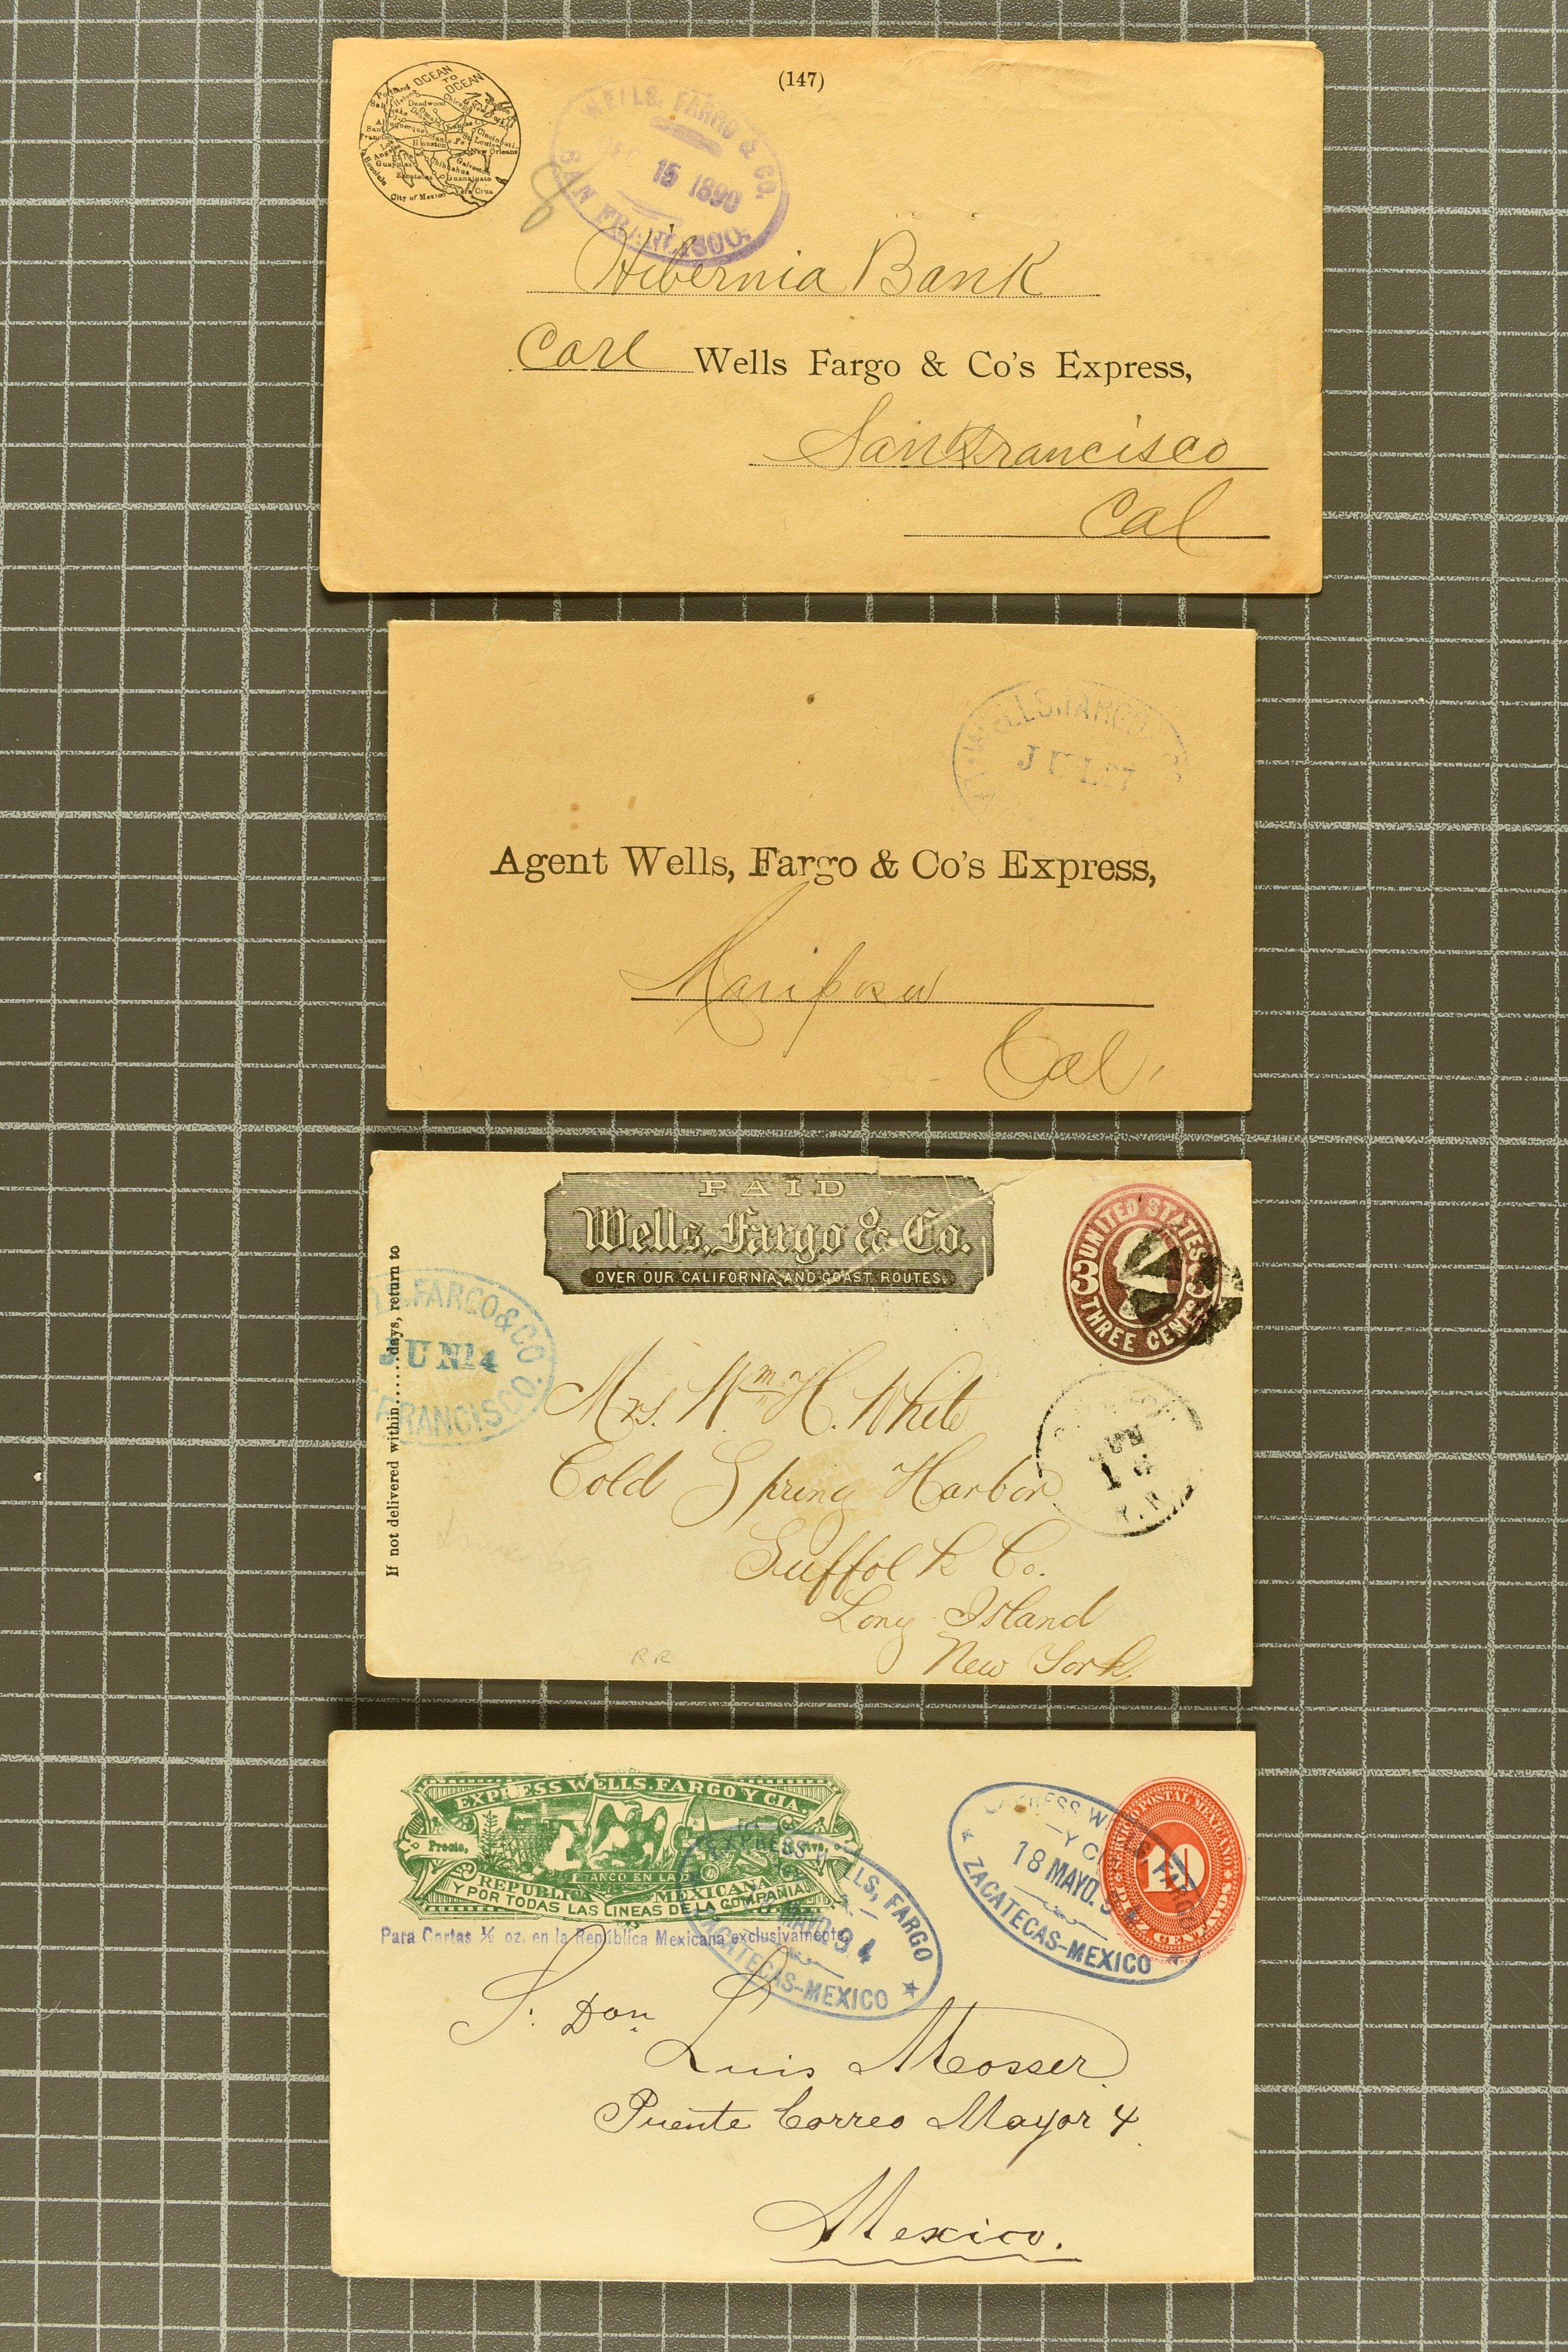 (147)
OCEAN TO OCEAN
Portland
Deadwood
Chicago
Omaha
Kansas
Cincinnati
Albuquerque
Santa Fe
St Louis
San Francisco
Houston
New Orleans
Los Angeles
Galveston
Guaymas
Chihuahua
Honolulu
Zacatecas
Guanajuato
Vera Cruz
City of Mexico
WELLS, FARGO & CO.
15 1890
SAN FRANCISCO
8
Hibernia Bank
Care Wells Fargo & Co's Express,
San Francisco
Cal
WELLS, FARGO & CO
JUL 7
Agent Wells, Fargo & Co's Express,
Mariposa
Cal,
PAID
Wells, Fargo & Co.
OVER OUR CALIFORNIA AND COAST ROUTES.
UNITED STATES
3 3
THREE CENTS
If not delivered within ...... days, return to
FARGO & CO
JUN 14
FRANCISCO.
JUN
Mrs. Wm H. White
Cold Spring Harbor
Suffolk Co.
Long Island
New York.
RR
EXPRESS WELLS, FARGO Y CIA.
FRANCO EN LA
REPUBLICA MEXICANA
Y POR TODAS LAS LINEAS DE LA COMPAÑIA
Para Cartas ½ oz. en la República Mexicana exclusivamente
EXPRESS WELLS, FARGO
MAYO. 94
ZACATECAS-MEXICO
EXPRESS WELLS, FARGO
Y CIA
18 MAYO. 9
ZACATECAS-MEXICO
SERVICIO POSTAL MEXICANO
10
DIEZ CENTAVOS
S. Don
Luis Mosser
Puente Correo Mayor 4.
Mexico.